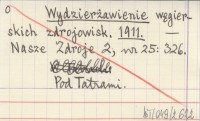 o
Wydzierżawienie węgier-
skich zdrojowisk. 1911. —
Nasze Zdroje 2, nr 25: 326.
Pod Tatrami.